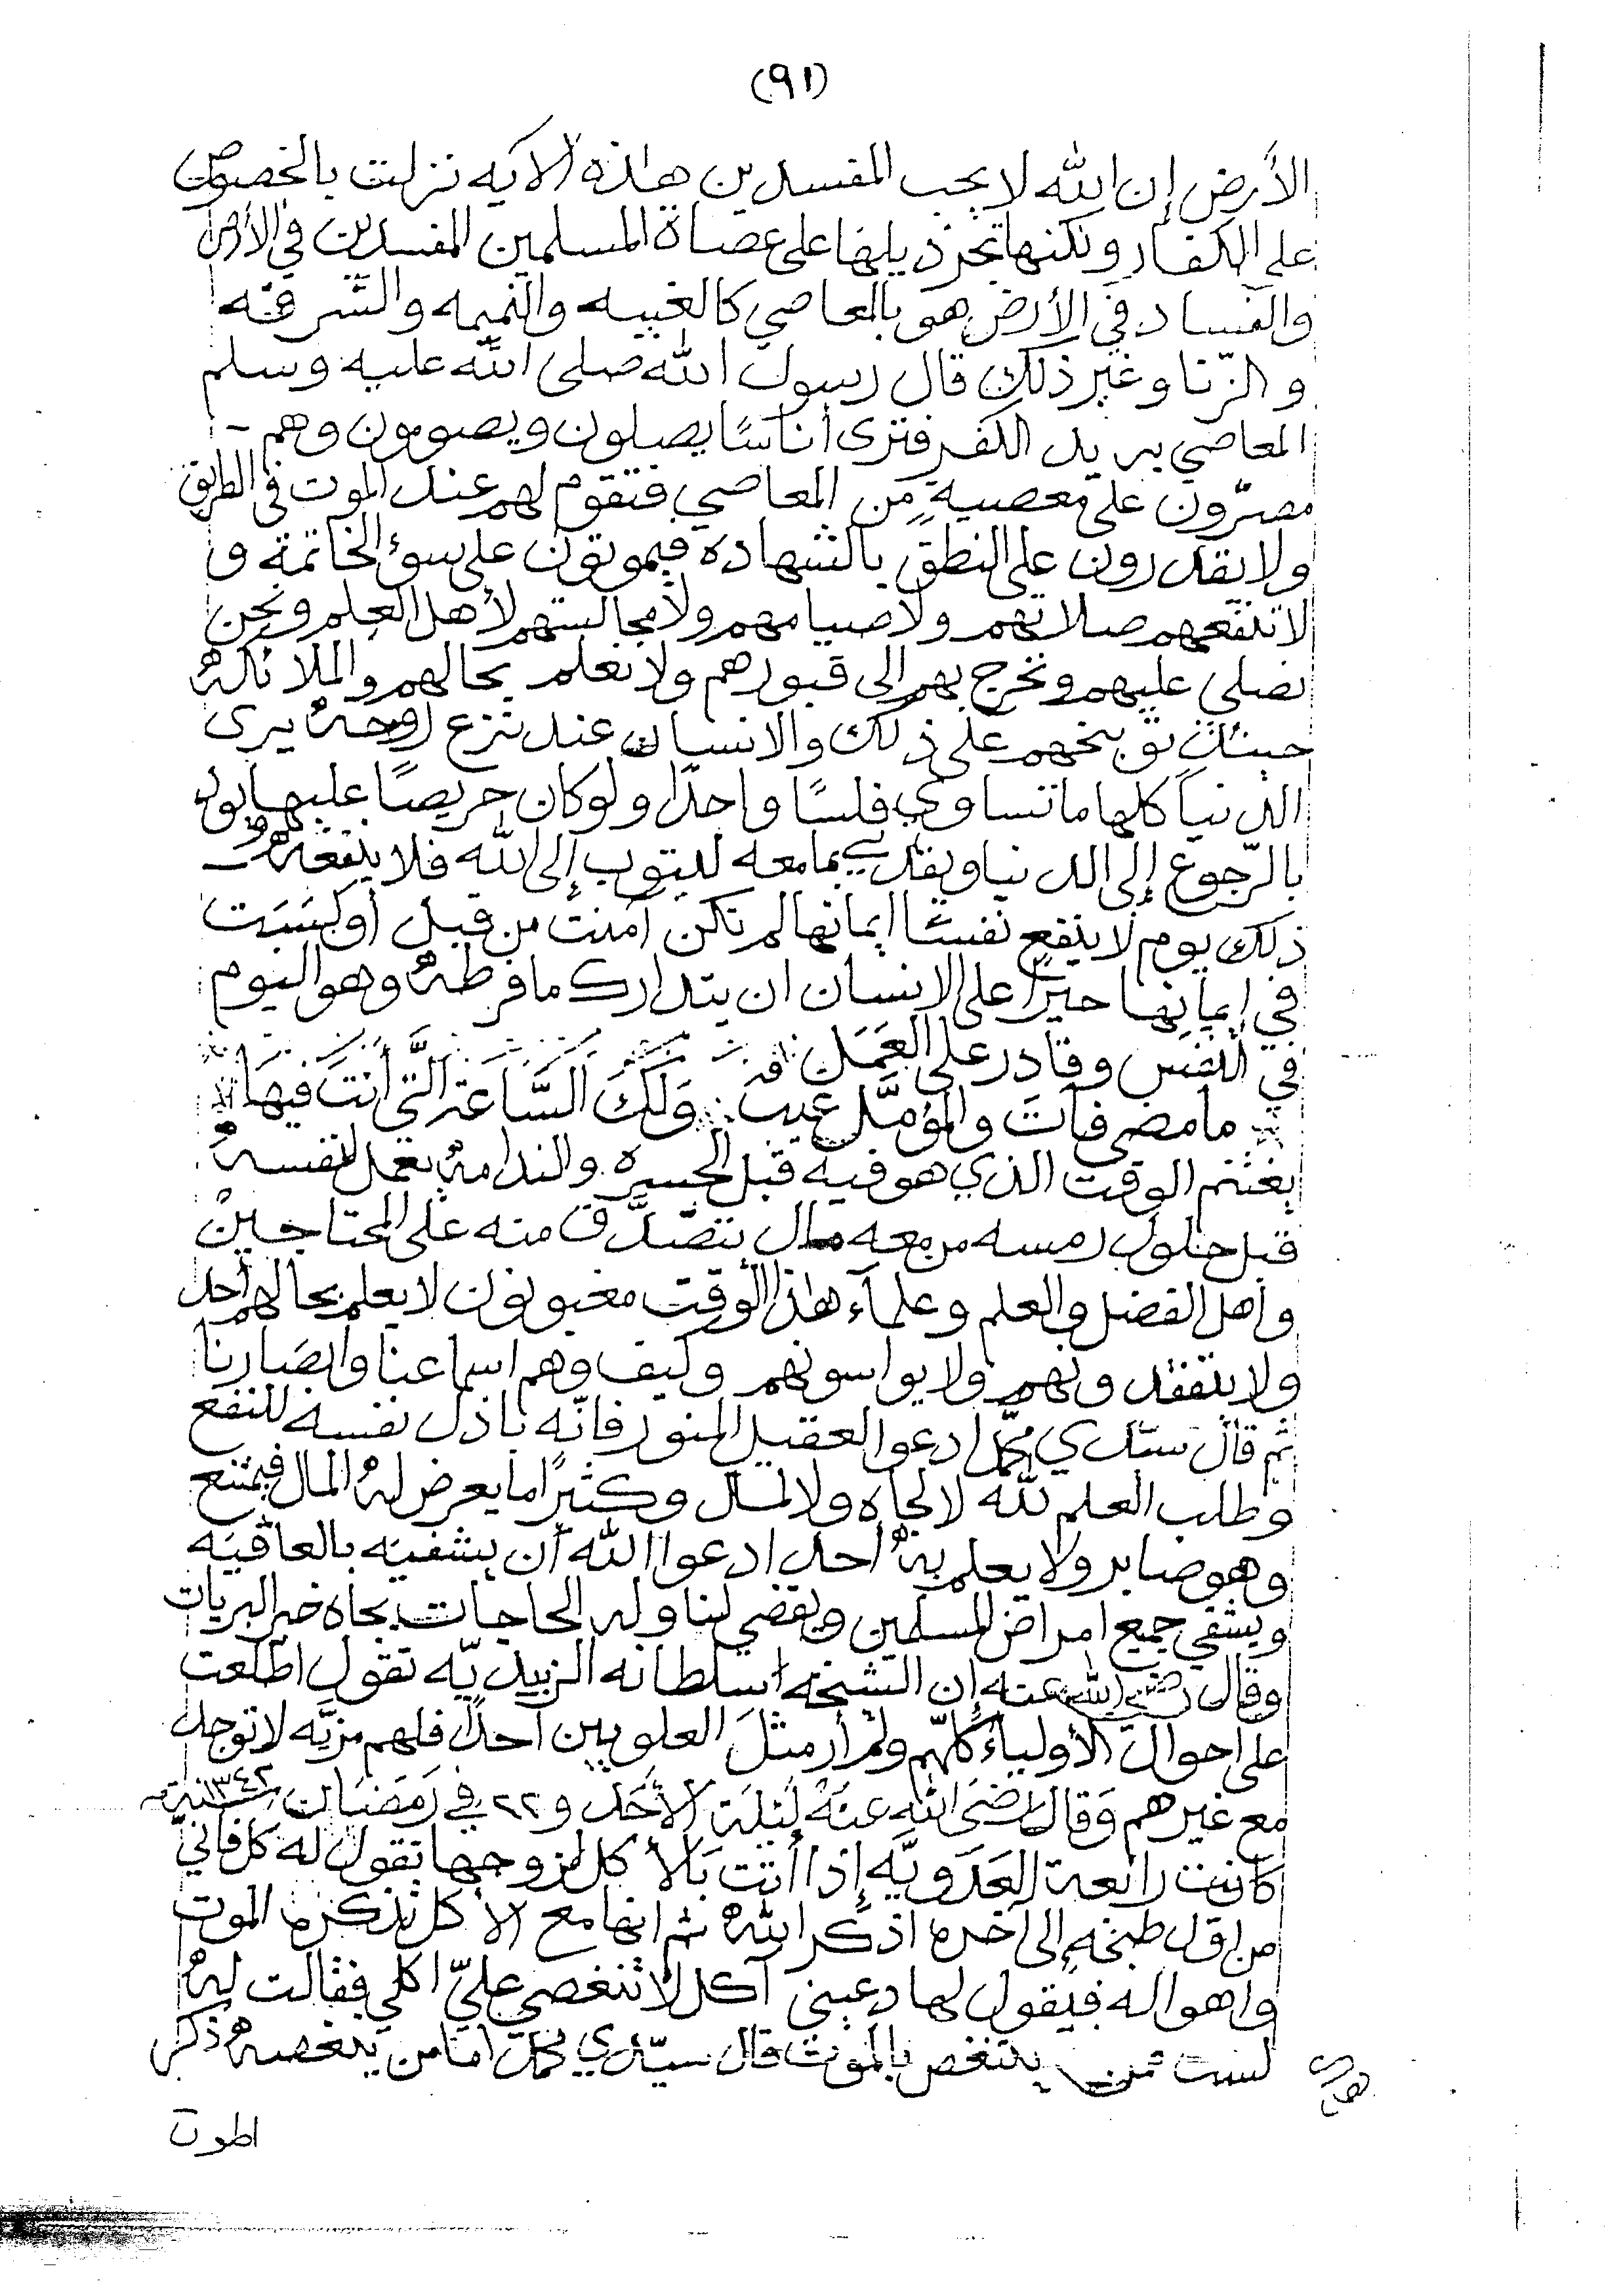 (٩١)
الأرض إن الله لا يحب المفسدين هاذه الايه نزلت بالخصوص
على الكفار ولكنها تجر ذيلها على عصاة المسلمين المفسدين في الأرض
والفساد في الأرض هو بالمعاصي كالغيبه والنميمه والسّرقه
والزّنا وغير ذلك قال رسول الله صلى الله عليه وسلم
المعاصي بريد الكفر فترى أناسًا يصلون ويصومون وهم
مصرّون على معصيةٍ من المعاصي فتقوم لهم عند الموت في الطريق
ولا يقدرون على النطق بالشهاده فيموتون على سوء الخاتمة و
لا تنفعهم صلاتهم ولا صيامهم ولا مجالستهم لأهل العلم ونحن
نصلي عليهم ونخرج بهم إلى قبورهم ولا نعلم بحالهم والملائكه
حينئذ توبخهم على ذلك والانسان عند نزع روحه يرى
الدنيا كلها ما تساوي فلسًا واحدًا ولو كان حريصًا عليها يود
بالرّجوع إلى الدنيا ويفدي بما معه ليتوب إلى الله فلا ينفعه
ذلك يوم لا ينفع نفسًا ايمانها لم تكن آمنت من قبل أو كسَبَت
في إيمانها خيرًا على الانسان ان يتدارك ما فرطه وهو اليوم
في النفس وقادر على العَمَل
ما مضى فات والمؤمَّل غيب وَلَكَ السَّاعَة الَّتي أنتَ فيهَا
يغتنم الوقت الذي هو فيه قبل الحسره والندامه يعمل لنفسه
قبل حلول رمسه من معه مال يتصدّق منه على المحتاجين
واهل الفضل والعلم وعلمآء هاذا الوقت مغبونون لا يعلم بحالهم أحد
ولا يتفقدونهم ولا يواسونهم وكيف وهم اسماعنا وابصَارنا
ثم قال سيّدي محمّد ادعوا لعقيل المنور فانّه باذل نفسه للنفع
وطلب العلم لله لا لجاه ولا لمال وكثيرًا ما يعرض له المال فيمتنع
وهو صابر ولا يعلم به أحد ادعوا الله أن يشفيه بالعافيه
ويشفي جميع امراض المسلمين ويقضي لنا وله الحاجات بجاه خير البريات
وقال رضي الله عنه إن الشيخه سلطانه الزبيديّه تقول اطلعت
على احوال الأولياء كلّهم ولم أر مثل العلويين أحدًا فلهم مزيّه لا توجد
مع غيرهم وَقال رضيَ الله عنهُ ليْلَة الأحَد و ٢٢ في رَمضَان سنة ١٣٤٢
كانت رابعة العَدَويَّه إذا أتت بَالأكل لزوجها تقول له كل فاني
من اول طبخه إلى آخره اذكر الله ثم انها مع الاكل تذكره الموت
واهواله فيقول لها دعيني آكل لا تنغصي عليّ اكلي فقالت له
لست ممن يتنغص بالموت قال سيّدي محمد اما من ينغصه ذكر
الموت